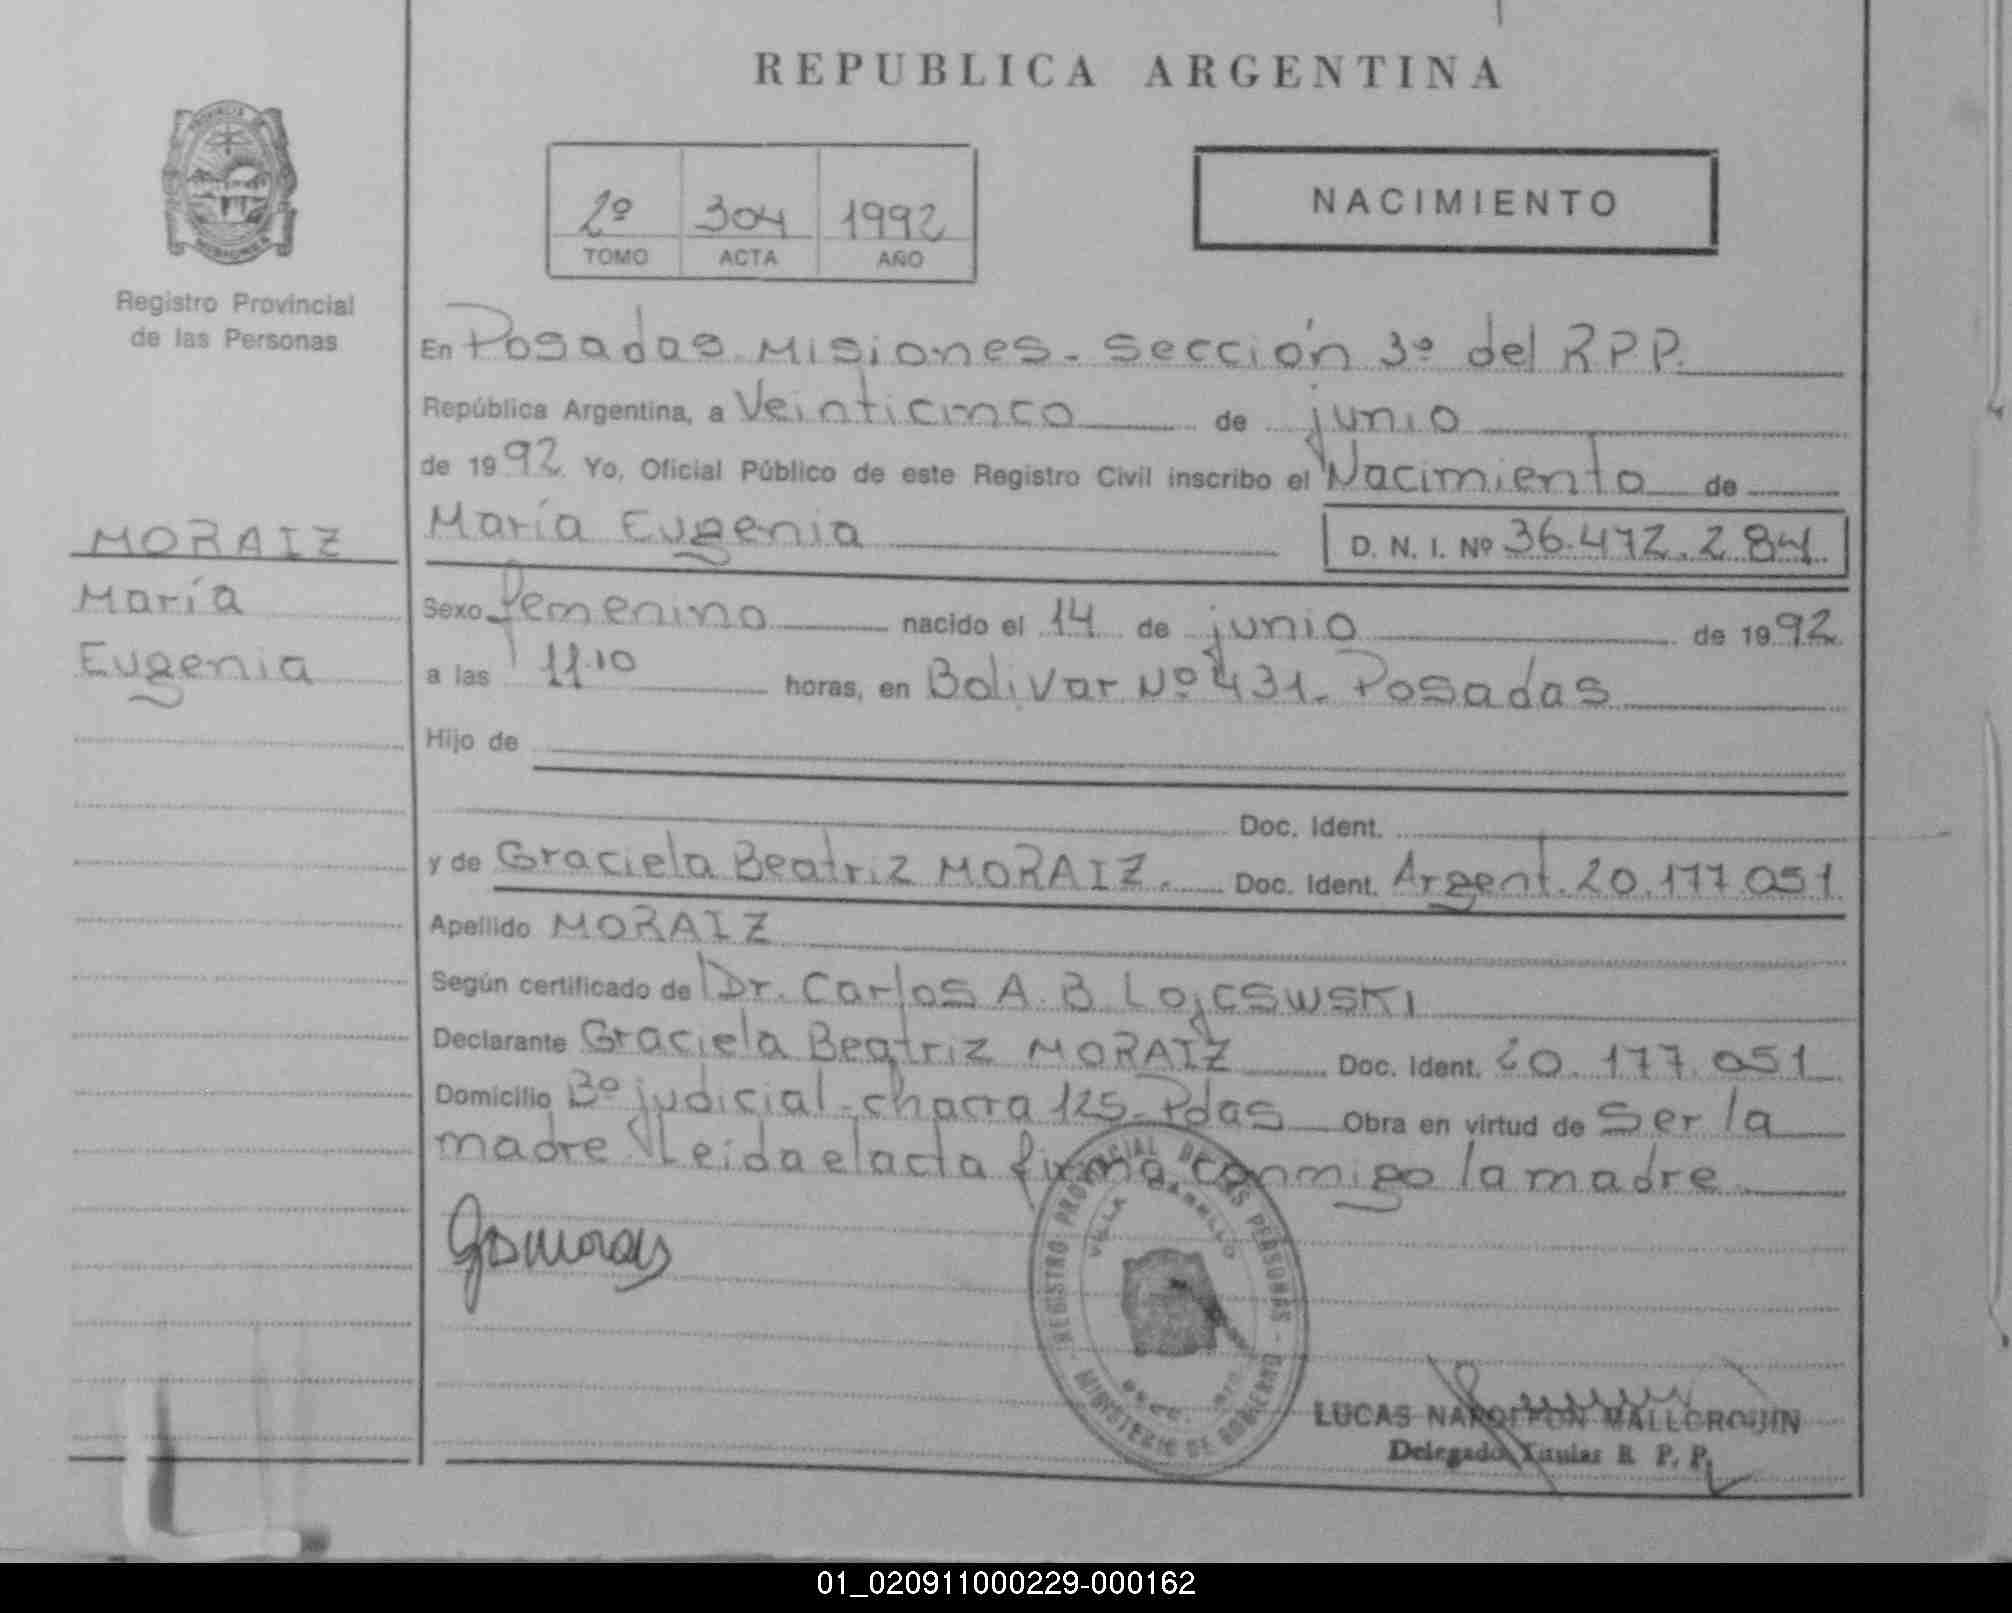 REPUBLICA ARGENTINA
2º 304 1992
TOMO ACTA AÑO
NACIMIENTO
Registro Provincial
de las Personas
MORAIZ
María
Eugenia
En Posadas Misiones - Sección 3º del R.P.P.
República Argentina, a Veinticinco de junio
de 1992. Yo, Oficial Público de este Registro Civil inscribo el Nacimiento de
María Eugenia D. N. I. Nº 36.472.284
Sexo femenino nacido el 14 de junio de 1992
a las 11.10 horas, en Bolivar Nº 431 - Posadas
Hijo de
Doc. Ident.
y de Graciela Beatriz MORAIZ. Doc. Ident. Argent. 20.177.051
Apellido MORAIZ
Según certificado de Dr. Carlos A. B. Lojcswski
Declarante Graciela Beatriz MORAIZ Doc. Ident. 20.177.051
Domicilio Bº judicial - chacra 125 - Pdas Obra en virtud de Ser la
madre Leida el acta firma conmigo la madre
REGISTRO PROVINCIAL DE LAS PERSONAS - MINISTERIO DE GOBIERNO
VILLA CABELLO
LUCAS NAPOLEON MALLORQUIN
Delegado R. P. P.
01_020911000229-000162